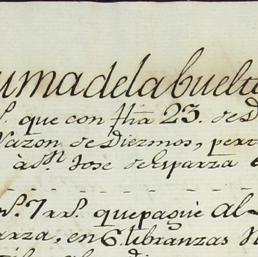 uma de la buelta
s. que con fha 23. de D
razon de Diezmos, pert
à Dn. Jose de Esparza
s. 7 rrs. que paguè al
arza, en 6 libranzas N